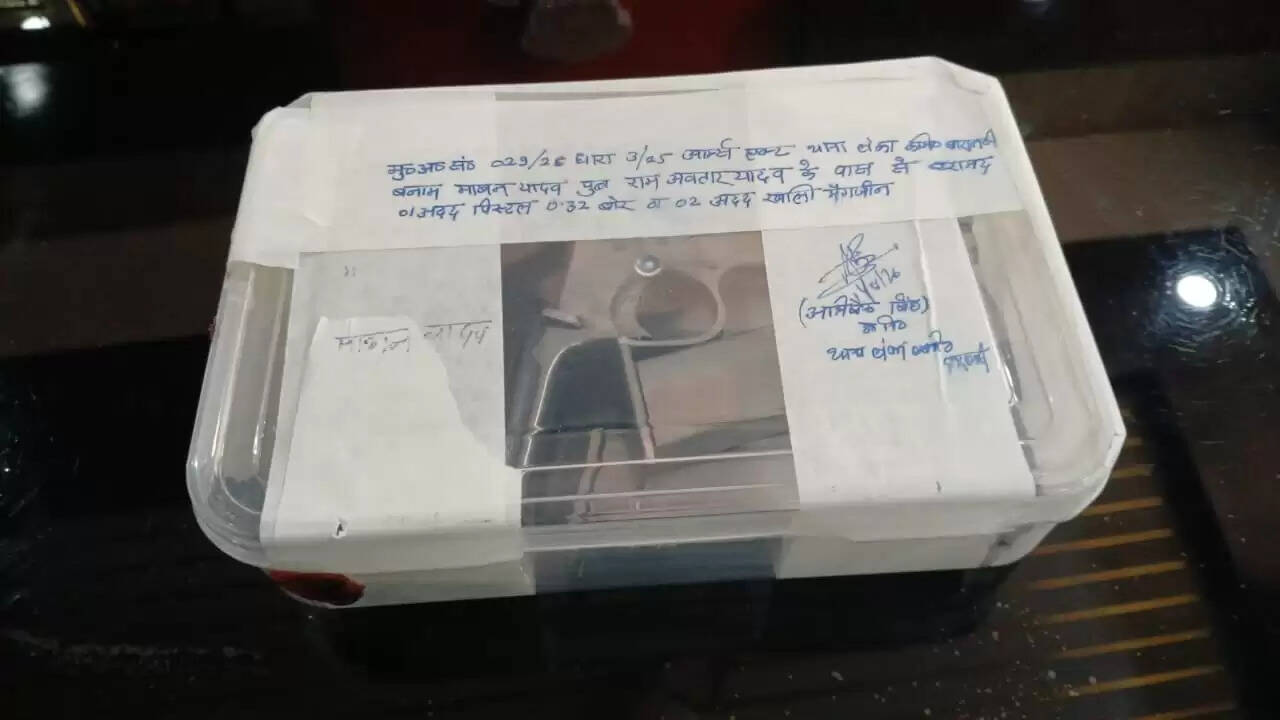 मु0अ0सं0 029/26 धारा 3/25 आर्म्स एक्ट थाना लंका कमि0 वाराणसी
बनाम माखन यादव पुत्र राम अवतार यादव के पास से बरामद
01 अदद पिस्टल 0.32 बोर व 02 अदद खाली मैगजीन
माखन यादव
(अभिषेक सिंह)
उ0नि0
थाना लंका कमि0
वाराणसी